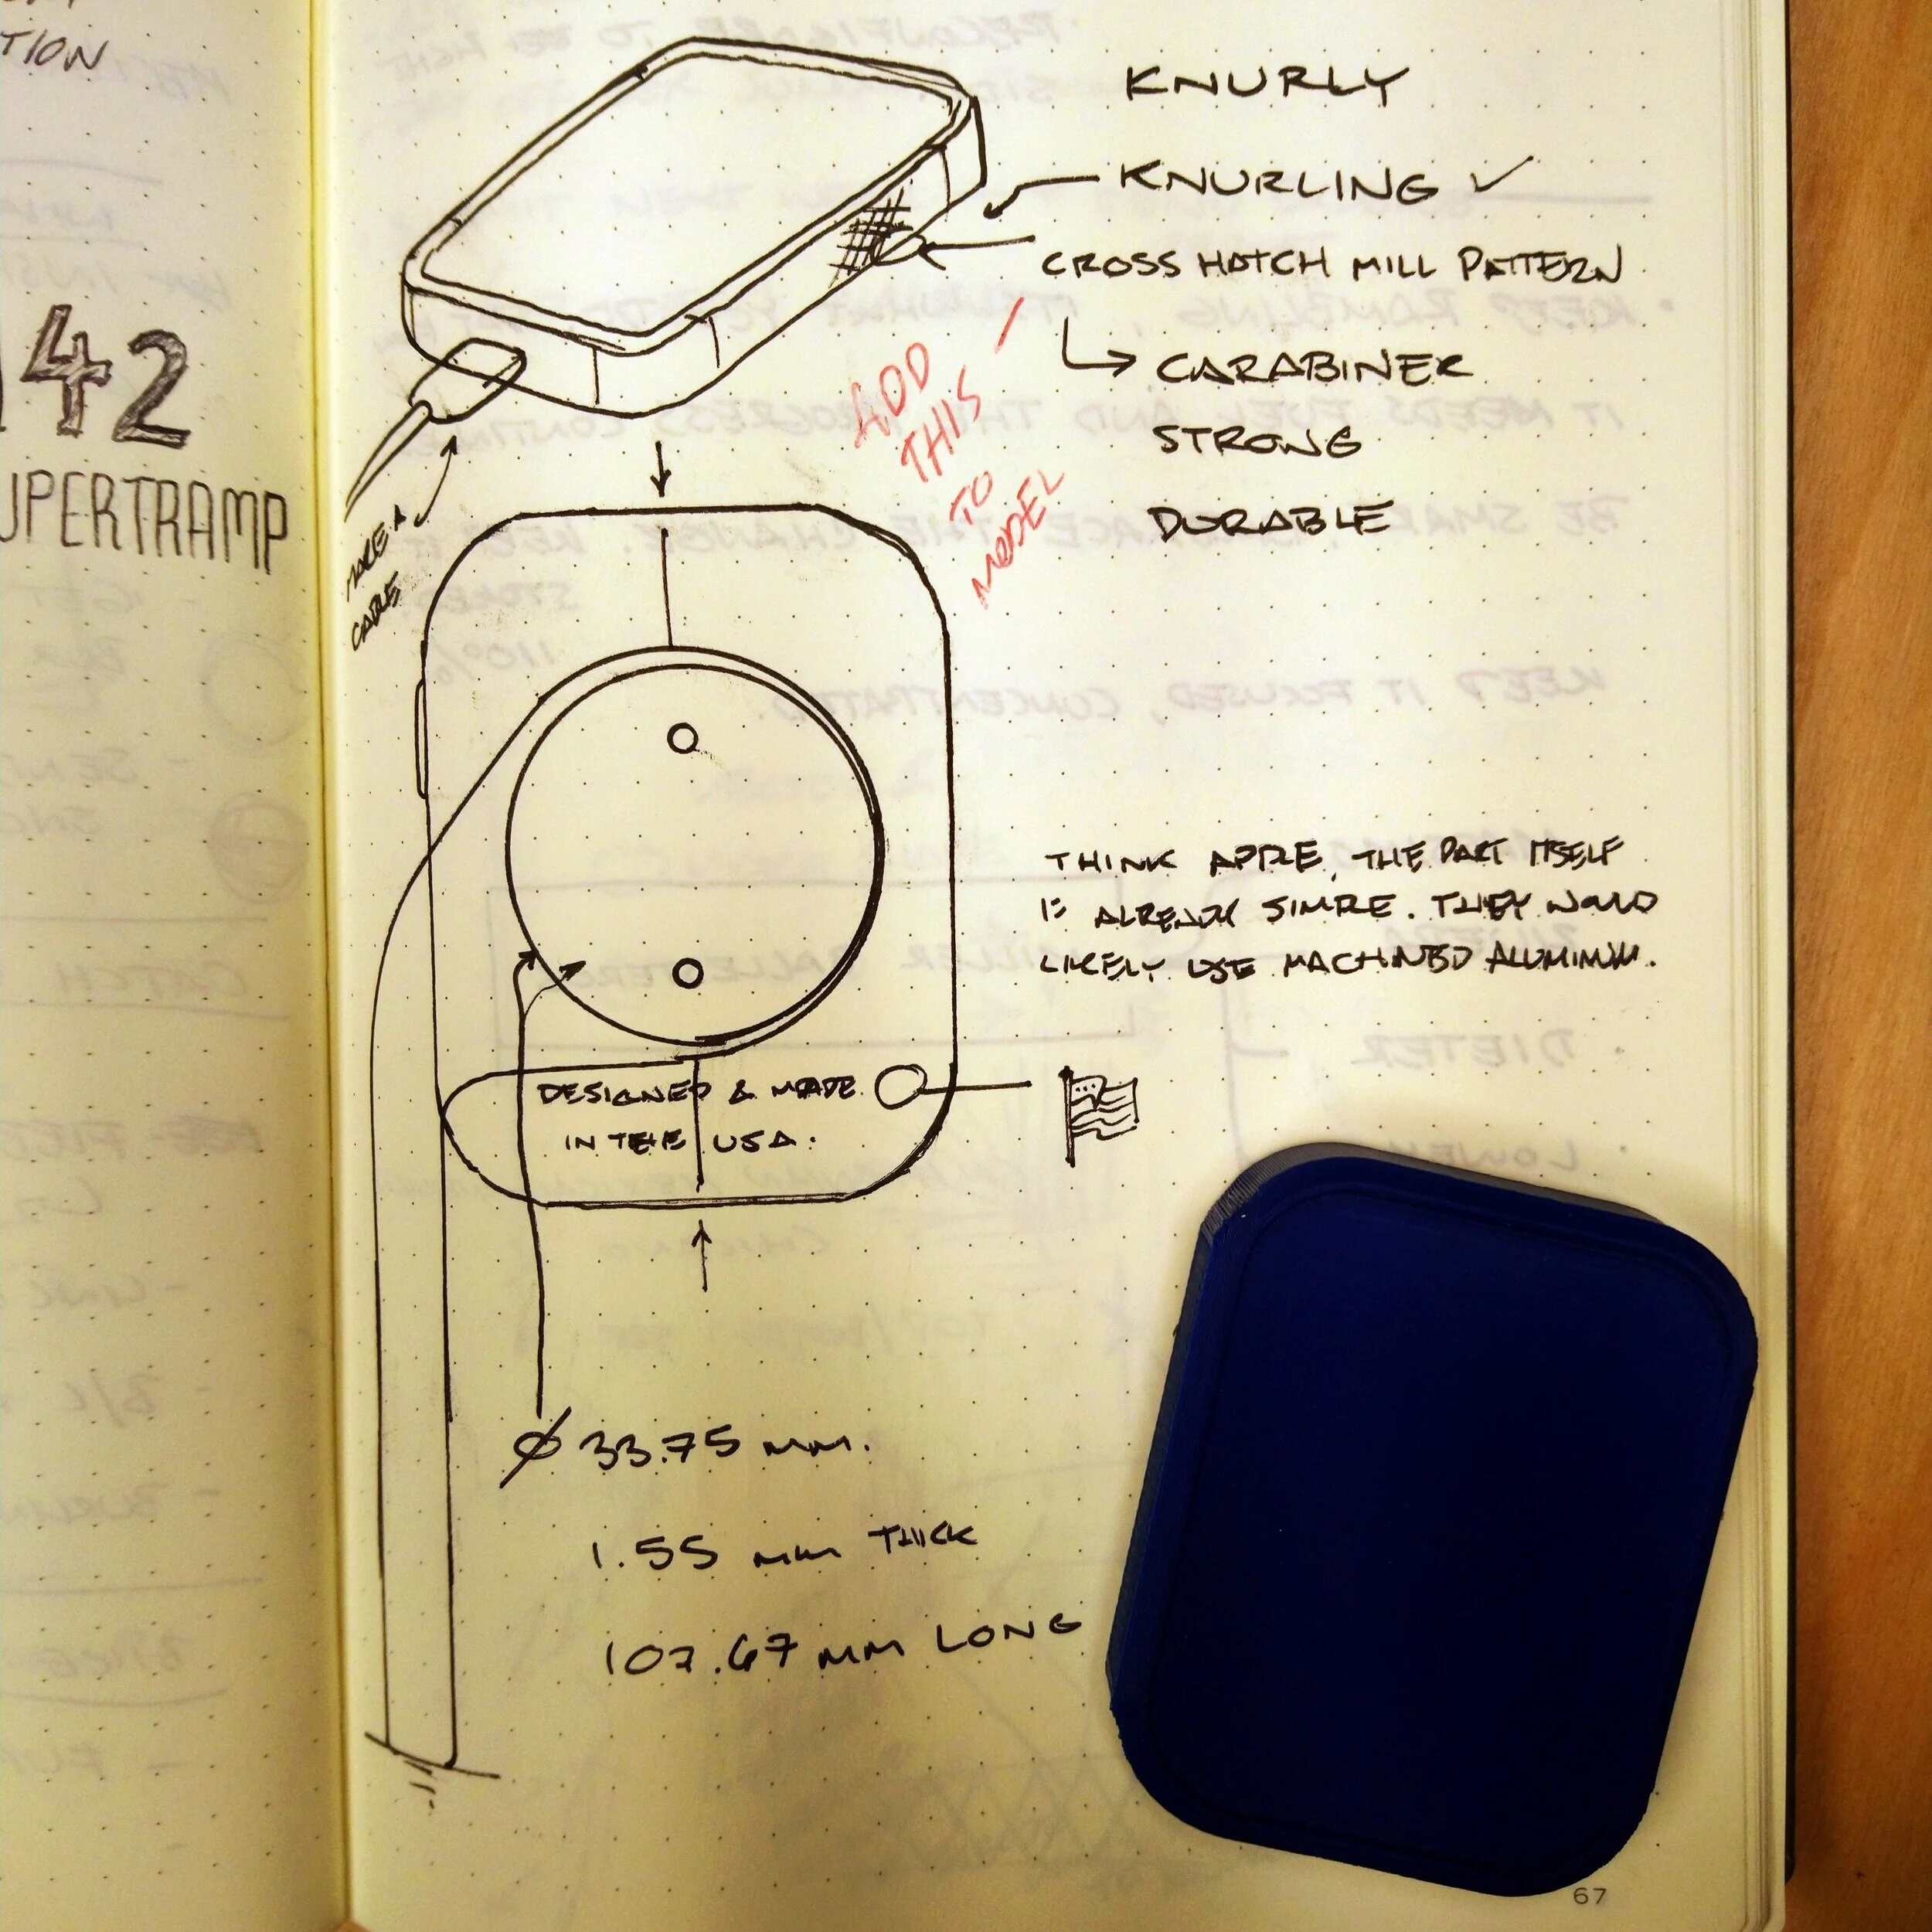 TION
142
UPERTRAMP
KNURLY
KNURLING ✓
CROSS HATCH MILL PATTERN
CARABINER
STRONG
DURABLE
ADD
THIS
TO
MODEL
MAKE A
CABLE
THINK APPLE, THE PART ITSELF
IS ALREADY SIMPLE. THEY WOULD
LIKELY USE MACHINED ALUMINUM.
DESIGNED & MADE
IN THE USA.
Ø 33.75 mm.
1.55 mm THICK
107.67 mm LONG
67